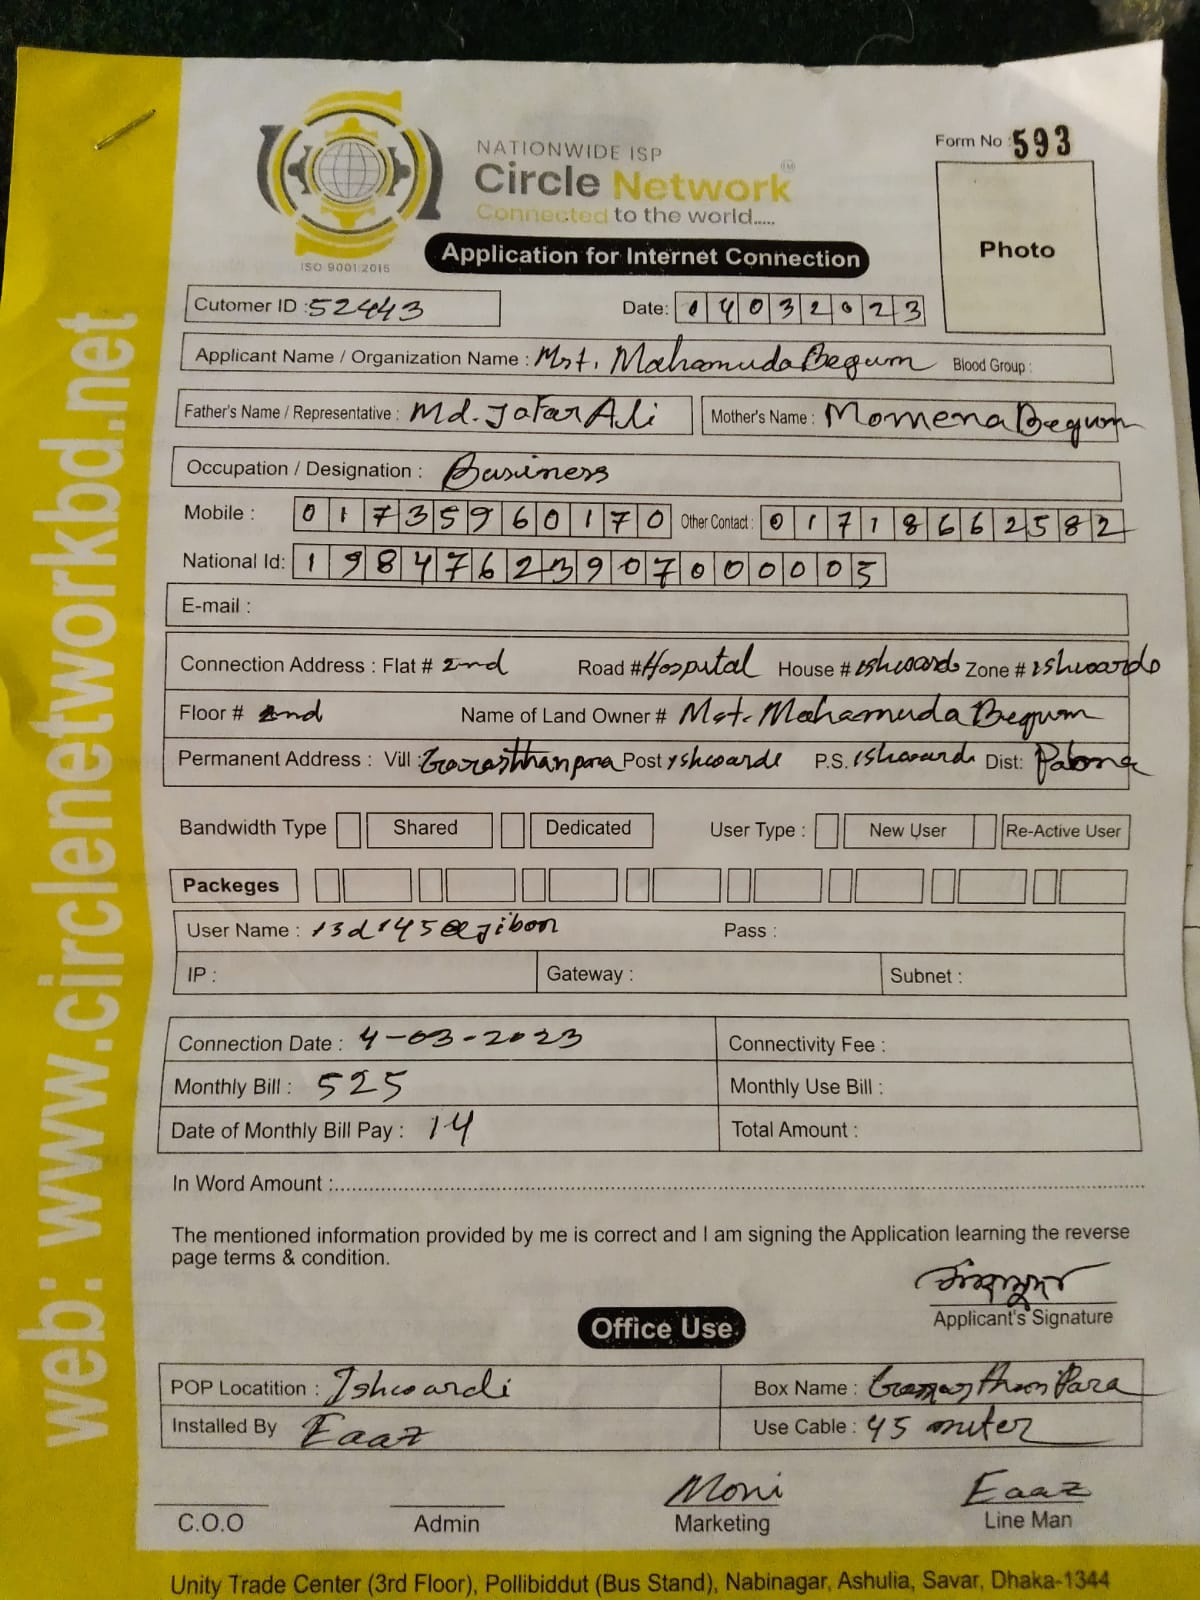 NATIONWIDE ISP
Circle Network TM
Connected to the world.....
ISO 9001:2015
Form No : 593
Photo
Application for Internet Connection
Cutomer ID : 52443 Date: 04032023
Applicant Name / Organization Name : Mst. Mahamuda Begum Blood Group :
Father's Name / Representative : Md. Jafar Ali Mother's Name : Momena Begum
Occupation / Designation : Business
Mobile : 01735960170 Other Contact : 01718662582
National Id: 19847623907000005
E-mail :
Connection Address : Flat # 2nd Road # Hospital House # Ishwardi Zone # Ishwardi
Floor # 2nd Name of Land Owner # Mst. Mahamuda Begum
Permanent Address : Vill : Gorasthanpara Post Ishwardi P.S. Ishwardi Dist: Pabna
Bandwidth Type Shared Dedicated User Type : New User Re-Active User
Packeges
User Name : 13d145@jibon Pass :
IP : Gateway : Subnet :
Connection Date : 4-03-2023 Connectivity Fee :
Monthly Bill : 525 Monthly Use Bill :
Date of Monthly Bill Pay : 14 Total Amount :
In Word Amount :
The mentioned information provided by me is correct and I am signing the Application learning the reverse
page terms & condition.
Applicant's Signature
Office Use
POP Locatition : Ishwardi Box Name : Gorasthan Para
Installed By Eaaz Use Cable : 45 meter
Moni Eaaz
C.O.O Admin Marketing Line Man
Unity Trade Center (3rd Floor), Pollibiddut (Bus Stand), Nabinagar, Ashulia, Savar, Dhaka-1344
web: www.circlenetworkbd.net